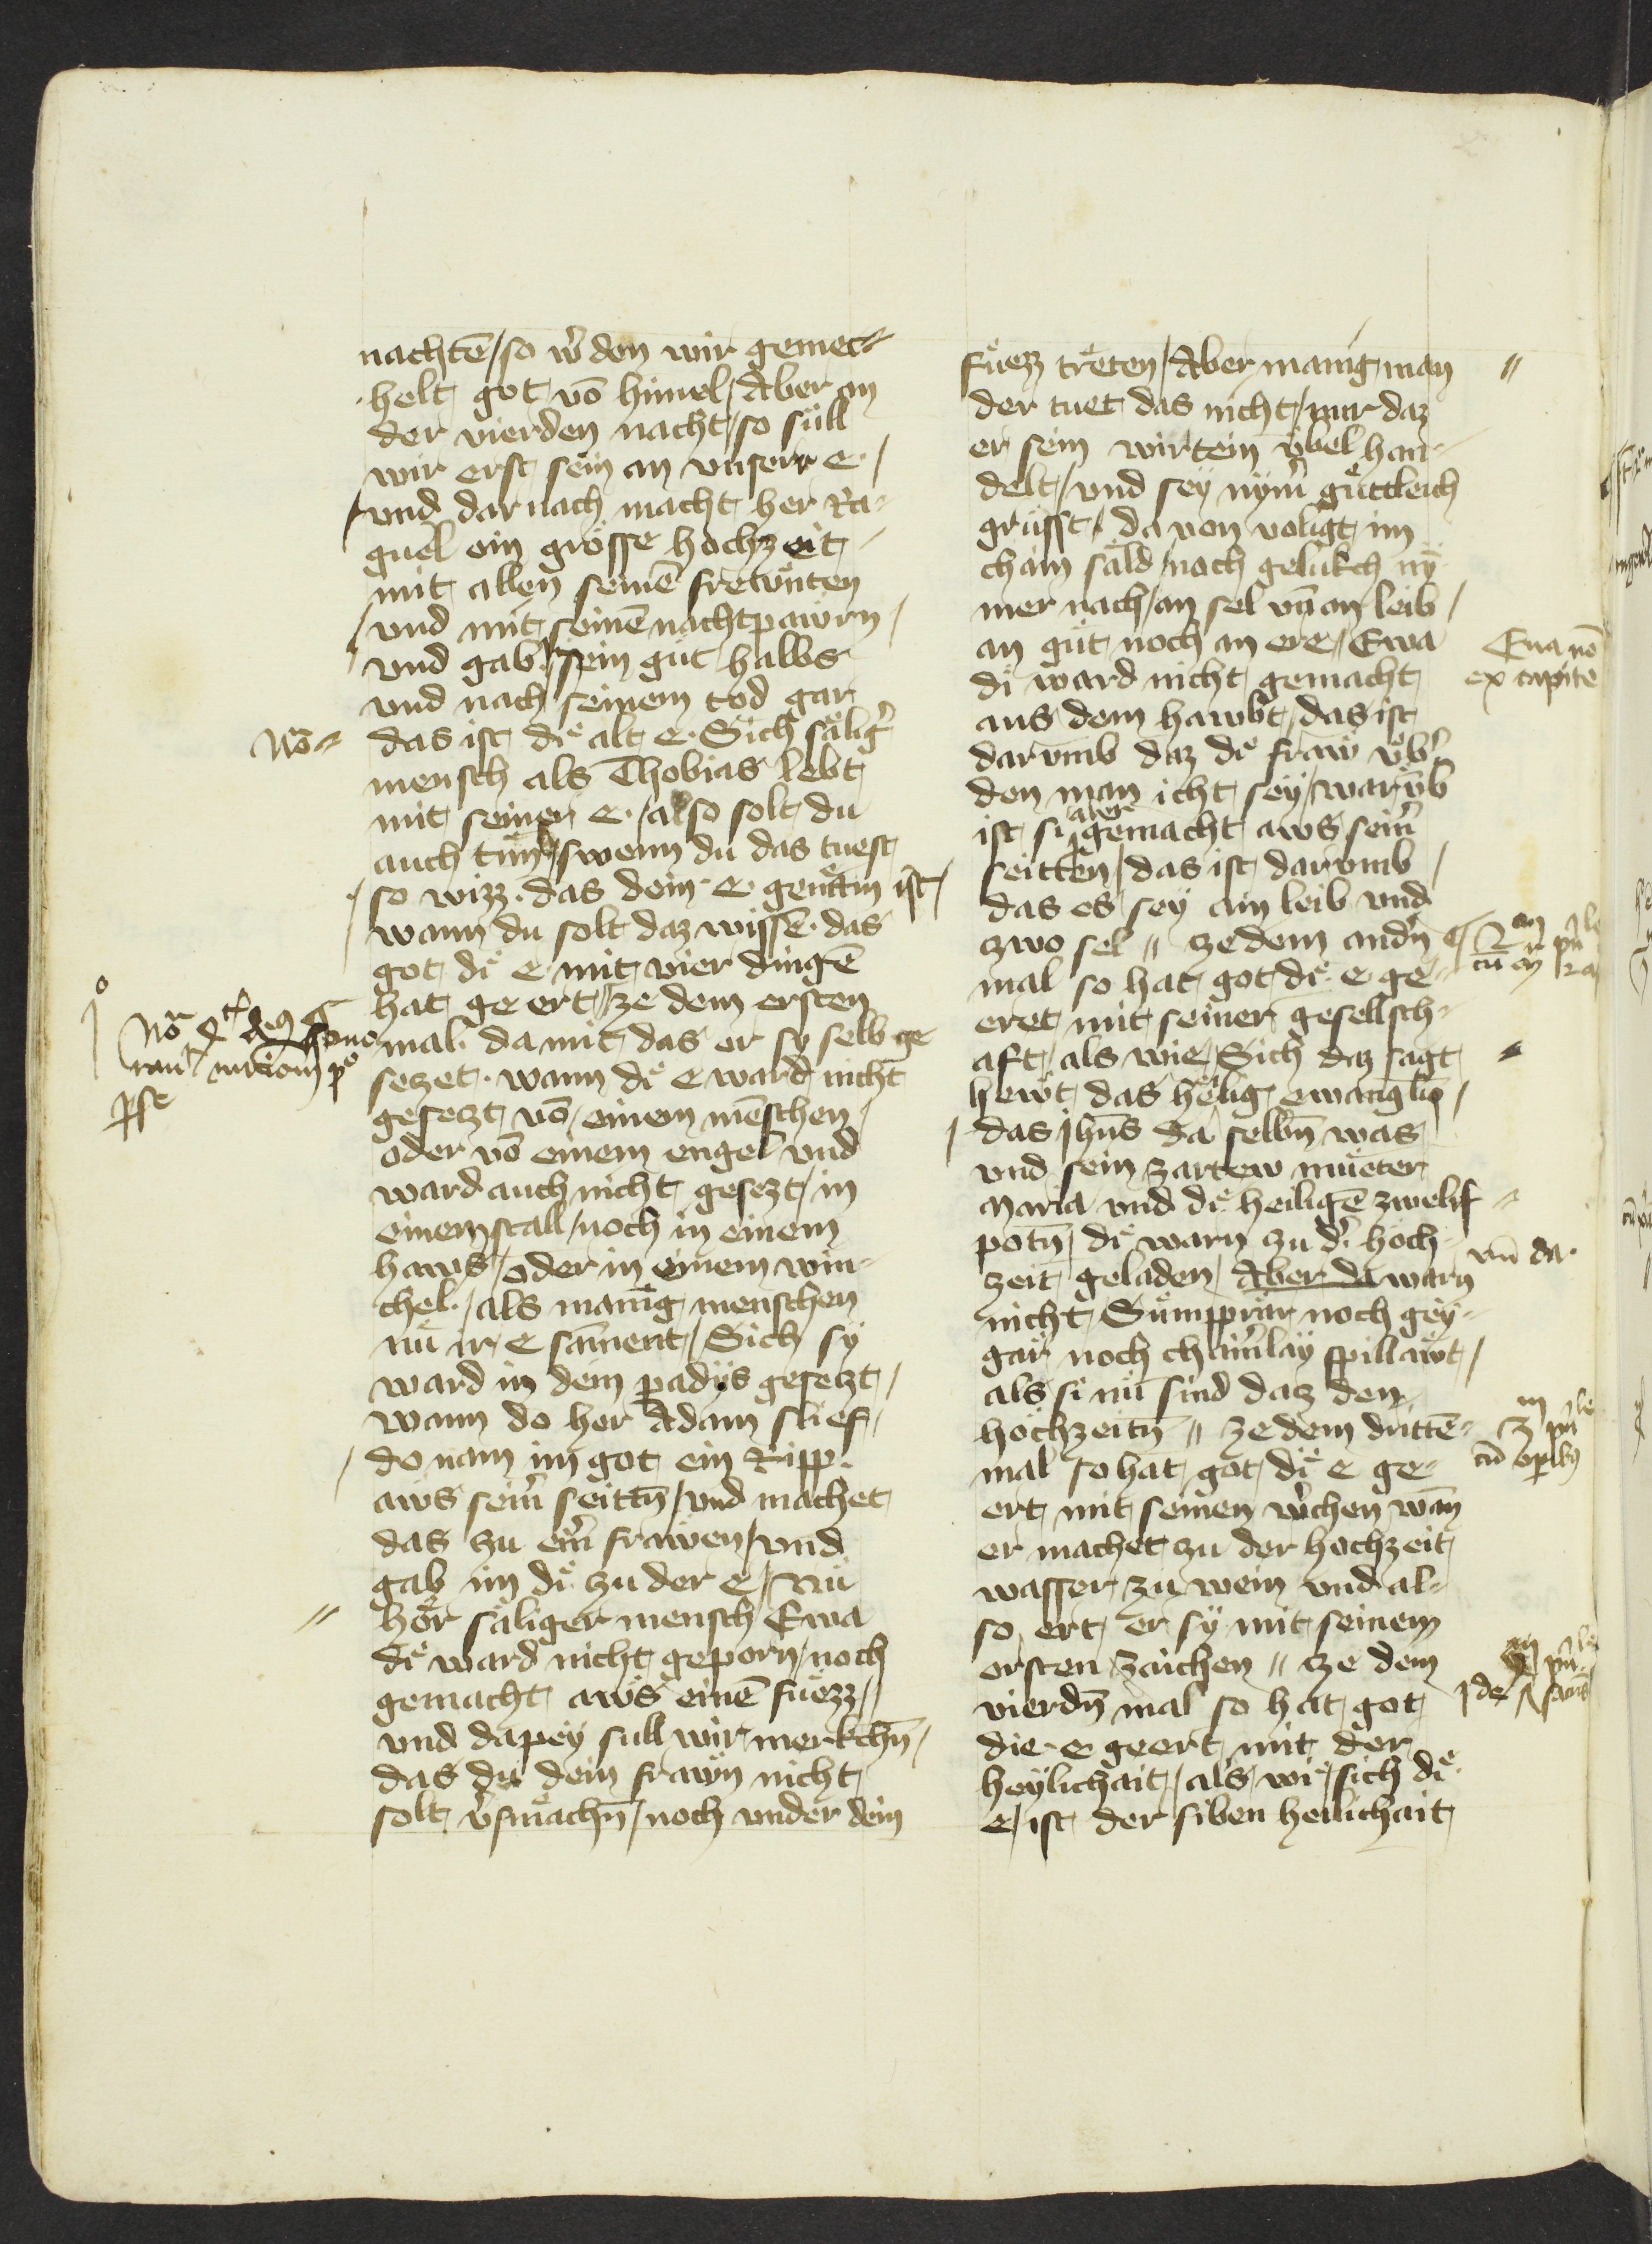 nachtē / so w̄den wir gemec-
helt got vō himel / Aber an
der vierden nacht / so süll
wir erst sein an vnserr e. /
vnd dar nach macht her Ra-
guel ein grösse hochzeit
mit allen seinē frewnten
/ vnd mit seinē nachtpawrn /
vnd gab / sein güt halbs
vnd nach seinem tod gar
Nō das ist dͤi alt e. Sich säliḡ
mensch als Thobias lebt
mit seiner e. / also solt du
auch tün / swenn du das tuest
/ so wizz. das dein e. genäm ist /
wann du solt daz wissē. das
got dͤi e mit vier dingē
hat geert // ze dem ersten
mal. da mit das er sy selb ge
sezet. wann dͤi e ward nicht
gesetzt vō einem mēschen /
oder vō einem engel vnd
ward auch nicht gesezt / in
einem stall / noch in einem
haws / oder in einem win-
chel. / als manig menschen
nu ir e sāment / Sich sy
ward in dem padÿs gesetzt /
wann do her Adam slief /
/ do nam im got ein Ripp.
aws sein̄ seittn̄ / vnd machet
das zu ein̄ frawen / vnd
gab im dͤi zu der e / Nu
hör säliger mensch Ewa
dͤi ward nicht geporn / noch
gemacht aws einē fuezz //
vnd dapey sull wir merkchn̄ /
das du dein frawn nicht
solt v̄smächn̄ / noch vnder dein
füezz treten / Aber manig man //
der tuet das nicht / nur daz
er sein wirtein v̈bel han-
delt / vnd sey nym̄ güttleich
grüsst / da von voligt im
cham säld / nach gelükch nÿ
mer nach / an sel vn̄ an leib /
an güt noch an ere / Ewa
di ward nicht gemacht
aus dem hawbt / das ist
darvmb daz dͤi fraw v̈b̄
den man icht sey / warv̄b
ist si aver gemacht aws sein̄
seitten / das ist darvmb /
das es sey ain leib vnd
zwo sel // ze dem andn̄
mal so hat got dͤi e ge-
eret mit seiner gesellsch-
aft / als wie / Sich daz sagt
hewt das heͤlig ewangliū /
/ das jhn̄s da selbn̄ was
vnd sein zartew mueter
Maria vnd dͤi heiligē zwelif
potn̄ / dͤi warn zu d̄ höch-
zeit geladen / Aber da warn
nicht Sümpprär noch gey-
gär noch chain̄läy spillawt /
als si nu sind daz den
höchzeitn̄ // ze dem drittē-
mal so hat got dͤi e ge-
ert mit seinen w̄chen wān
er machet zu der hochzeit
wasser zu wein vnd al-
so ert er sÿ mit seinem
ersten zaichen // ze dem
vierdn̄ mal so hat got
die e geert mit der
heÿlichait / als wͤi / sich dͤi
e / ist der siben heilichait
Eua nō
ex capite
vn̄ da.